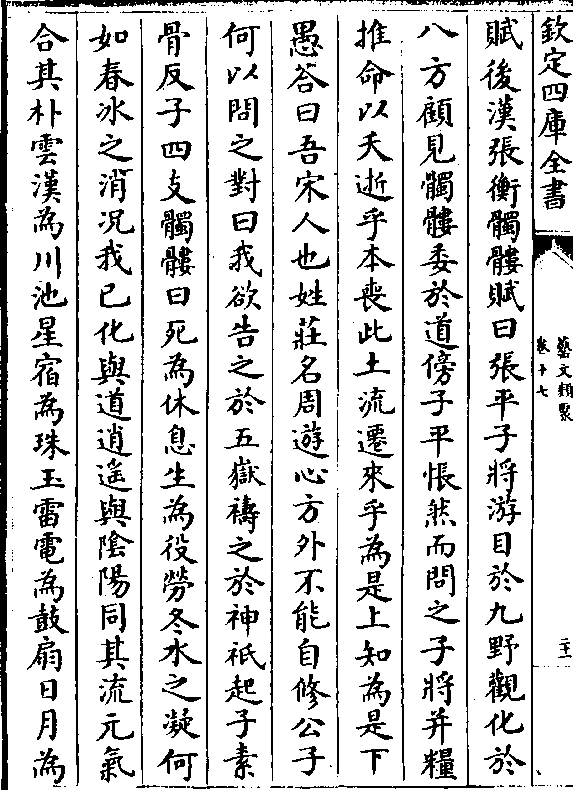 欽定四庫全書
藝文類聚
卷十七
二十一
賦後漢張衡髑髏賦曰張平子將游目於九野觀化於
八方顧見髑髏委於道傍子平悵然而問之子將并糧
推命以夭逝乎本喪此土流遷來乎為是上知為是下
愚答曰吾宋人也姓莊名周遊心方外不能自修公子
何以問之對曰我欲告之於五嶽禱之於神祇起子素
骨反子四支髑髏曰死為休息生為役勞冬水之凝何
如春冰之消況我已化與道逍遥與陰陽同其流元氣
合其朴雲漢為川池星宿為珠玉雷電為鼓扇日月為